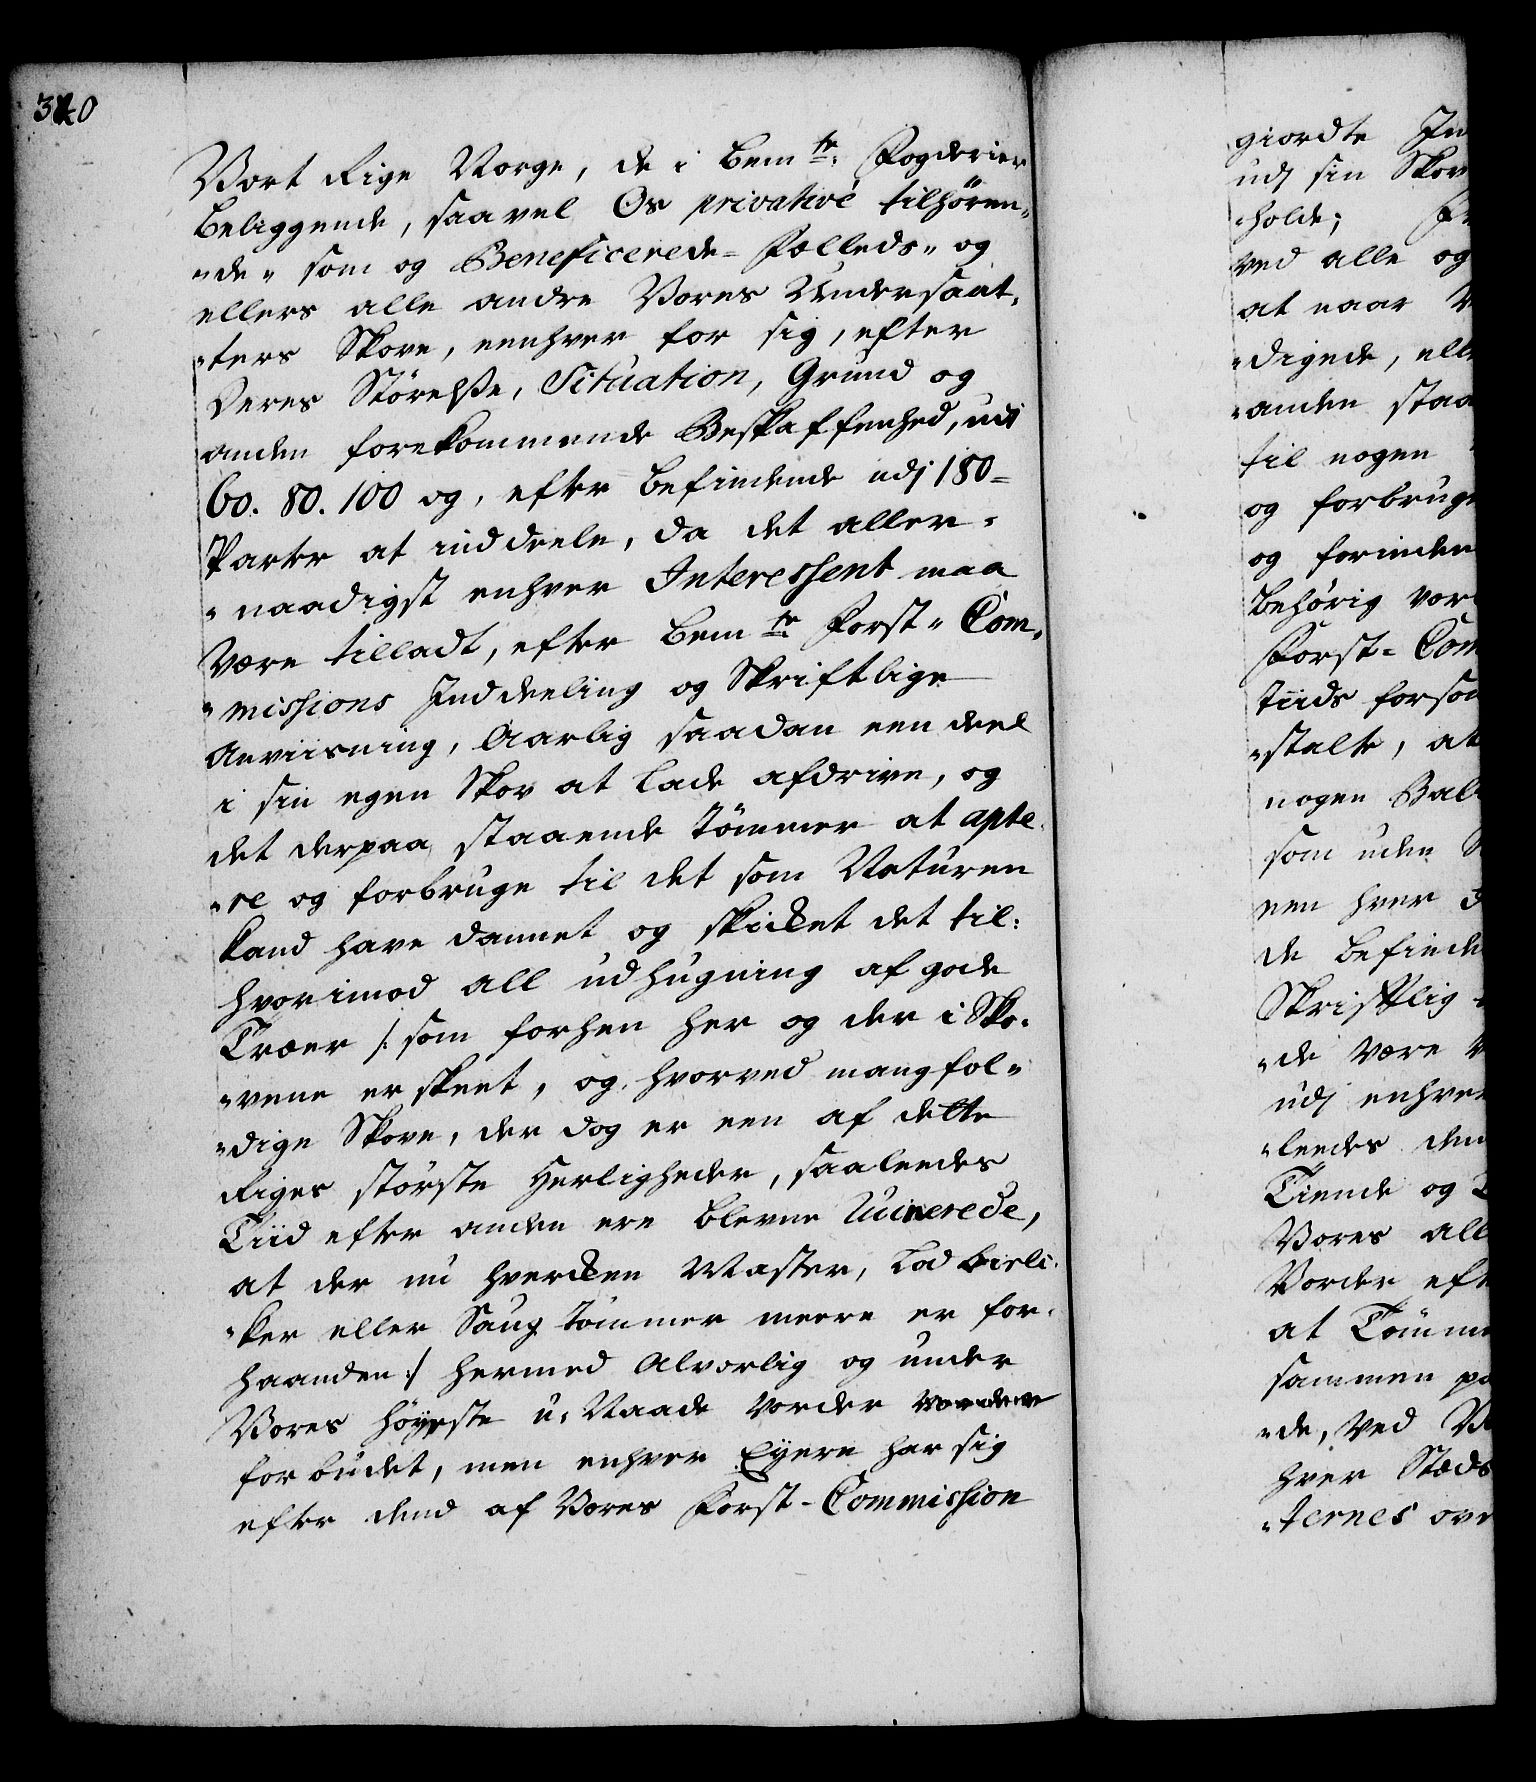 340
Vort Rige Norge, de i bem<sup>te</sup>: Fogderier
beliggende, saavel Os privativè tilhören„
„de„ som og Beneficerede- Fælleds„ og
ellers alle andre Vores Undersaat„
„ters Skove, eenhver for sig, efter
deres Störelße, Situation, Grund og
anden forekommende Beskaffenhed, udi
60. 80. 100 og, efter befindende udj 180=
Parter at inddeele, da det aller„
„naadigst enhver Interessent maa
være tilladt, efter bem<sup>te</sup> Forst„ Com„
„missions Inddeeling og Skriftlige
Anviisning, Aarlig saadan een deel
i sin egen Skov at lade afdrive, og
det derpaa staaende Tömmer at apte„
„re og forbruge til det som Naturen
kand have dannet og skicket det til:
hvorimod all udhugning af gode
Træer /: som forhen her og der i Sko„
„vene er skeet, og hvorved mangfol„
„dige Skove, der dog er een af dette
Riges störste Herligheder, saaleedes
Tiid efter anden ere blevne Ruinerede,
at der nu hvercken Master, Lod bieli„
„ker eller Saug Tömmer meere er for„
haanden :/ hermed Alvorlig og under
Vores höyeste u„Naade vorder
forbudet, men enhver Eyere har sig
efter dend af Vores Forst-Commission
giordte In
udj sin Skov
holde;
ved alle og
at naar
„digede, ell
„anden staa
til nogen
og forbruge
og forinden
behörig
Forst- Com
tiids
„stalte, at
nogen
som uden
een hver
de befinde
Skriftlig
„de være
udj enhver
„leedes den
Tiende og
Vores all
Vorder eft
at Tömme
sammen pa
„de, ved
hver Stæds
„ternes ove